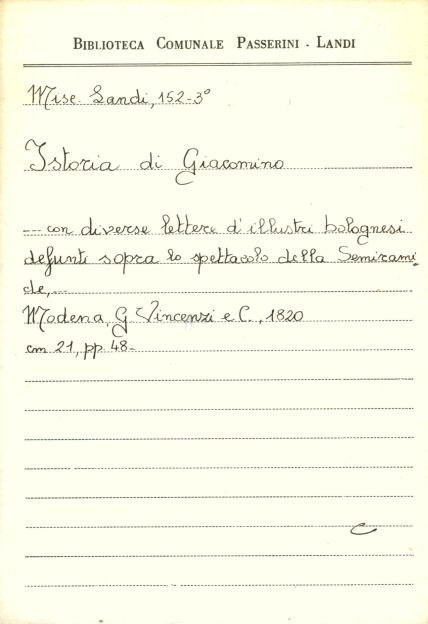 BIBLIOTECA COMUNALE PASSERINI - LANDI
Misc. Landi, 152-3°
Istoria di Giacomino
--- con diverse lettere d'illustri bolognesi
defunti sopra lo spettacolo della Semirami
de,...
Modena, G. Vincenzi e C., 1820
cm 21, pp. 48-
C